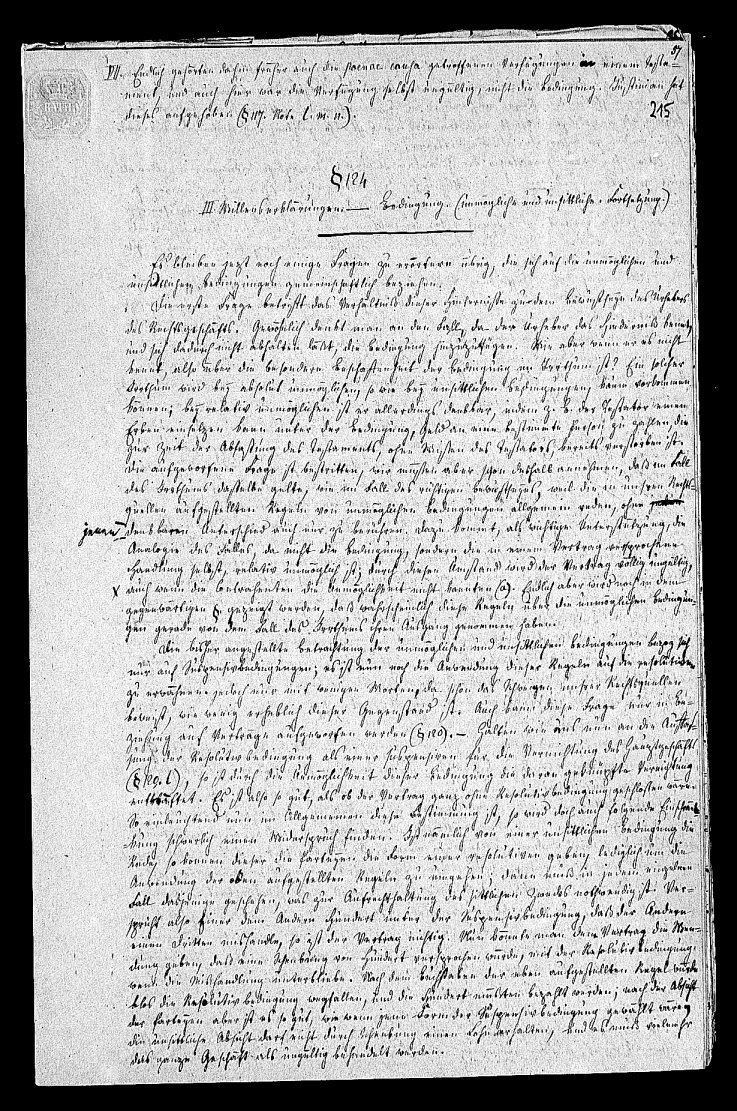 57
VII. Endlich gehörten dahin früher auch die poenae causa getroffenen Verfügungen in einem Testa-
ment, und auch hier war die Verfügung selbst ungültig, nicht die Bedingung. Justinian hat
dieses aufgehoben (§ 117. Note l. m. n.).
215
§ 124
III. Willenserklärungen. — Bedingung. (Unmögliche und unsittliche. Fortsetzung.)
Es bleiben jetzt noch einige Fragen zu erörtern übrig, die sich auf die unmöglichen und
unsittlichen Bedingungen gemeinschaftlich beziehen.
Die erste Frage betrifft das Verhältniß dieser Hindernisse zu dem Bewußtseyn des Urhebers
des Rechtsgeschäfts. Gewöhnlich denkt man an den Fall, da der Urheber das Hinderniß kennt,
und sich dadurch nicht abhalten läßt, die Bedingung hinzuzufügen. Wie aber wenn er es nicht
kennt, also über die besondere Beschaffenheit der Bedingung im Irrthum ist? Ein solcher
Irrthum wird bey absolut unmöglichen, so wie bey unsittlichen Bedingungen, kaum vorkommen
können; bey relativ unmöglichen ist er allerdings denkbar, indem z. B. der Testator einen
Erben einsetzen kann unter der Bedingung, Geld an eine bestimmte Person zu zahlen, die
zur Zeit der Abfassung des Testaments, ohne Wissen des Testators, bereits verstorben ist.
Die aufgeworfene Frage ist bestritten, wir müssen aber schon deshalb annehmen, daß im Fall
des Irrthums dasselbe gelte, wie im Fall des richtigen Bewußtseyns, weil die in unsren Rechts-
quellen aufgestellten Regeln von unmöglichen Bedingungen allgemein reden, ohne
jenen denkbaren Unterschied auch nur zu berühren. Dazu kommt, als wichtige Unterstützung, die
Analogie des Falles, da nicht die Bedingung, sondern die in einem Vertrag versprochene
Handlung selbst, relativ unmöglich ist; durch diesen Umstand wird der Vertrag völlig ungültig,
x auch wenn die Contrahenten die Unmöglichkeit nicht kannten (a). Endlich aber wird noch in dem
gegenwärtigen §. gezeigt werden, daß wahrscheinlich diese Regeln über die unmöglichen Bedingun-
gen gerade von dem Fall des Irrthums ihren Ausgang genommen haben.
Die bisher angestellte Betrachtung der unmöglichen und unsittlichen Bedingungen bezog sich
nur auf Suspensivbedingungen; es ist nun noch die Anwendung dieser Regeln auf die resolutiven
zu erwähnen, jedoch nur mit wenigen Worten, da schon das Schweigen unsrer Rechtsquellen
beweist, wie wenig erheblich dieser Gegenstand ist. Auch kann diese Frage nur in Be-
ziehung auf Verträge aufgeworfen werden (§ 120). — Halten wir uns nun an den Auffas-
sung der Resolutivbedingung als einer suspensiven für die Vernichtung des Hauptgeschäfts
(§ 120. l), so ist durch die Unmöglichkeit dieser Bedingung die daran geknüpfte Vernichtung
entkräftet. Es ist also so gut, als ob der Vertrag ganz ohne Resolutivbedingung geschlossen wäre.
So einleuchtend nun im Allgemeinen diese Bestimmung ist, so wird doch auch folgende Einschrän-
kung schwerlich einen Widerspruch finden. Ist nämlich von einer unsittlichen Bedingung die
Rede, so können dieser die Parteyen die Form einer resolutiven geben, lediglich um die
Anwendung der oben aufgestellten Regeln zu umgehen; dann muß in jedem einzelnen
Fall dasjenige geschehen, was zur Aufrechthaltung des sittlichen Zweckes nothwendig ist. Ver-
spricht also Einer dem Andern Hundert unter der Suspensivbedingung, daß der Andere
einen Dritten mishandle, so ist der Vertrag nichtig. Nun könnte man dem Vertrag die Wen-
dung geben, daß eine Schenkung von Hundert versprochen würde, mit der Resolutivbedingung,
wenn die Mishandlung unterbliebe. Nach dem Buchstaben der oben aufgestellten Regel würde
blos die Resolutivbedingung wegfallen, und die Hundert müßten bezahlt werden; nach der Absicht
der Parteyen aber ist es so gut, wie wenn jene Form der Suspensivbedingung gewählt wäre,
die unsittliche Absicht darf nicht durch Schenkung einen Lohn erhalten, und es muß vielmehr
das ganze Geschäft als ungültig behandelt werden.